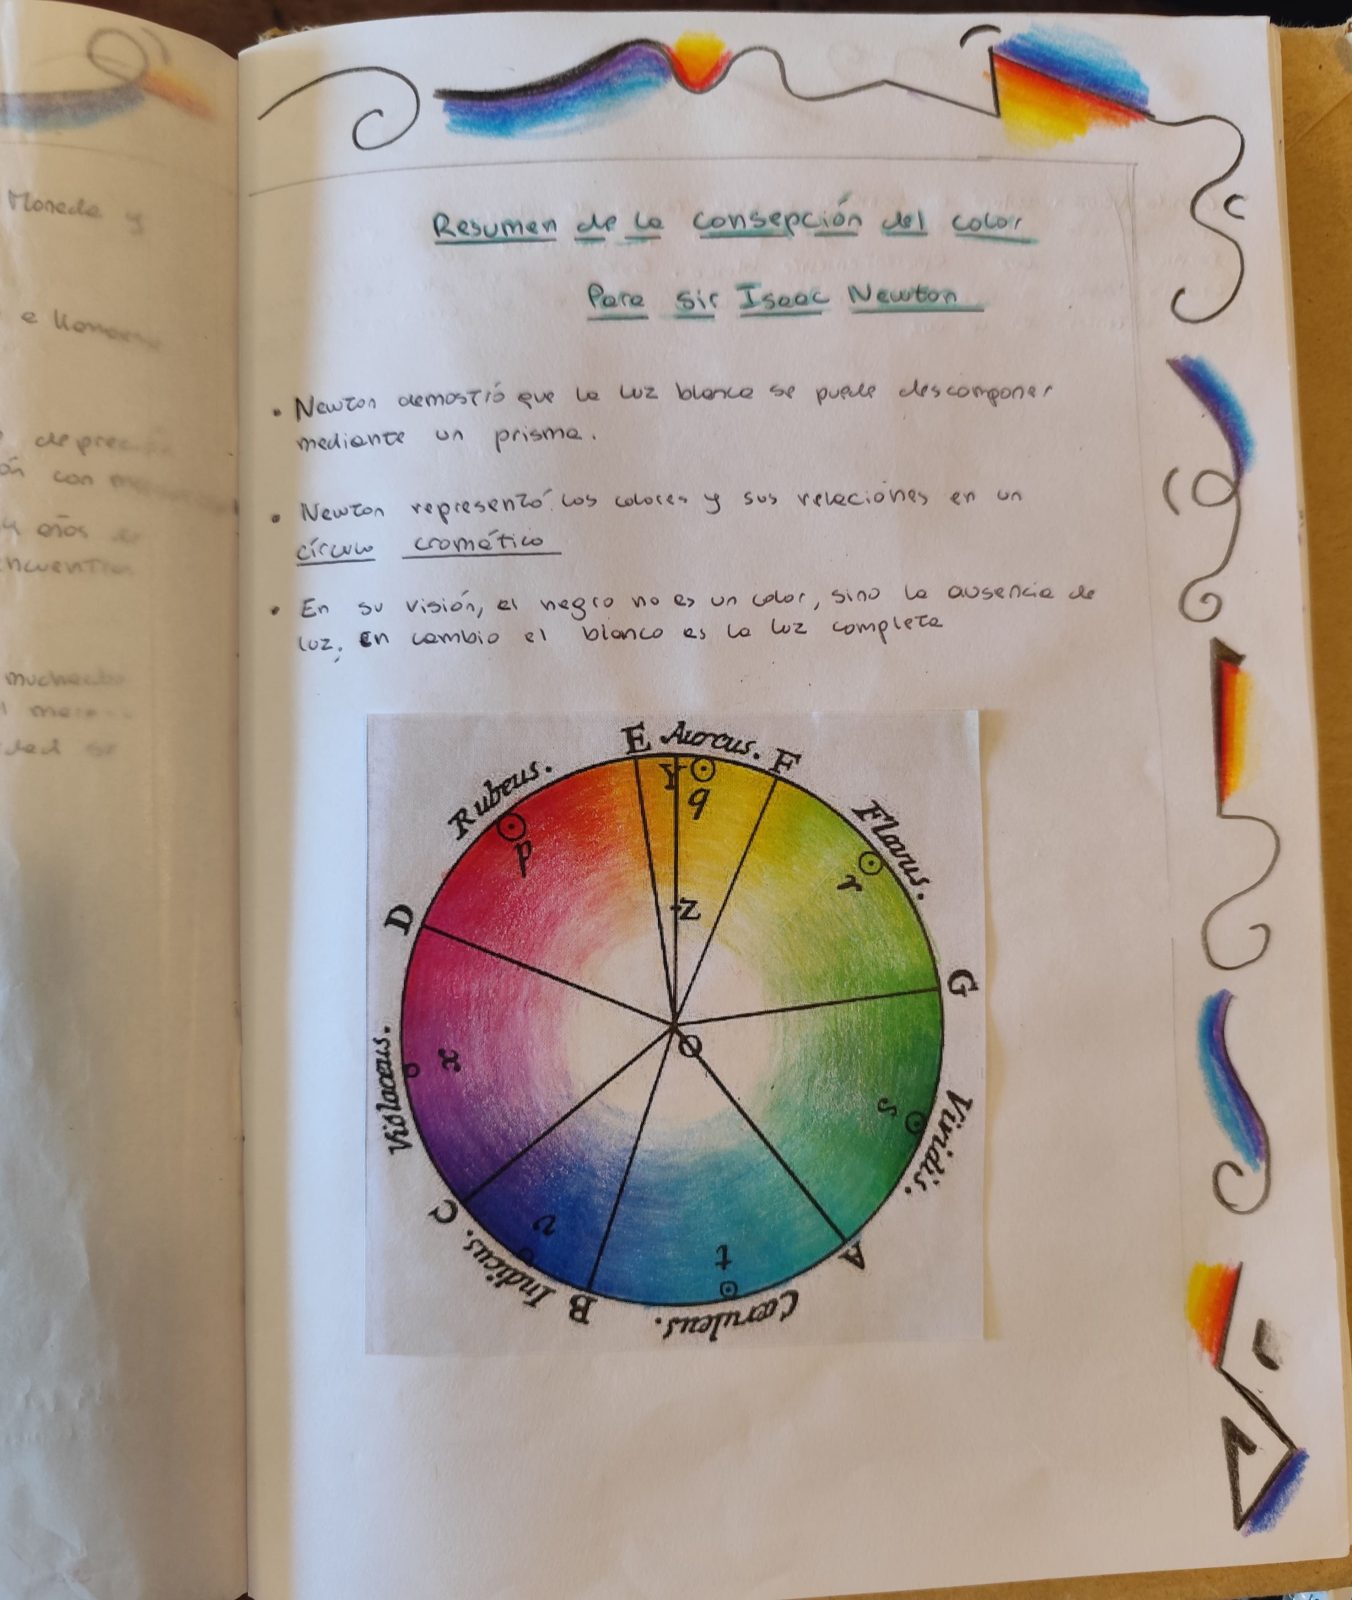 Moneda y
e
con
años
Resumen de la consepción del color
Para sir Isaac Newton
• Newton demostró que la luz blanca se puede descomponer
mediante un prisma.
• Newton representó los colores y sus relaciones en un
círculo cromático
• En su visión, el negro no es un color, sino la ausencia de
luz, en cambio el blanco es la luz completa
E Aureus. F
Rubeus.
Y
q
p
Flavus.
r
z
D
G
O
Violaceus.
x
s
Viridis.
C
v
t
A
Indicus.
B
Cœruleus.